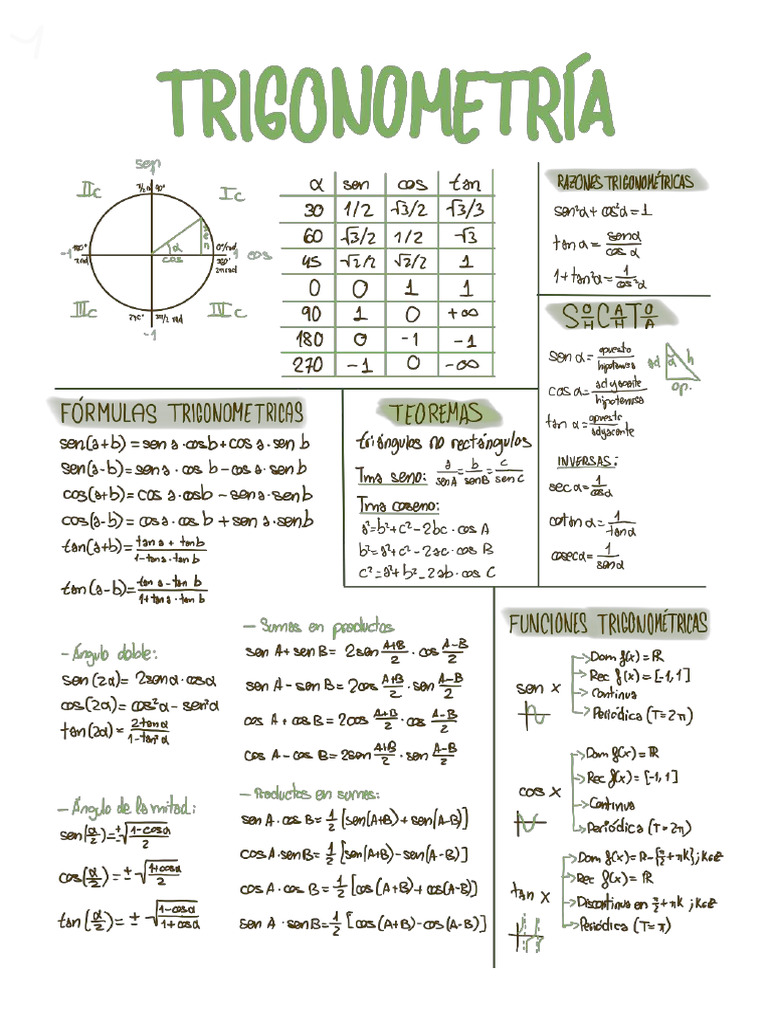 TRIGONOMETRÍA
sen
IIc
Ic
π/2 rad 90°
sen
α
cos
-1
180°
π rad
0°/rad
1
cos
360°
2π rad
IIIc
IVc
270° 3π/2 rad
-1
α sen cos tan
30 1/2 √3/2 √3/3
60 √3/2 1/2 √3
45 √2/2 √2/2 1
0 0 1 1
90 1 0 +∞
180 0 -1 -1
270 -1 0 -∞
RAZONES TRIGONOMÉTRICAS
sen²α + cos²α = 1
tan α = senα/cos α
1 + tan²α = 1/cos²α
S O/H C A/H T O/A
sen α = opuesto/hipotenusa
cos α = adyacente/hipotenusa
tan α = opuesto/adyacente
ad α h
op.
INVERSAS:
sec α = 1/cosα
cotan α = 1/tanα
cosec α = 1/senα
FÓRMULAS TRIGONOMETRICAS
sen(a+b) = sen a · cos b + cos a · sen b
sen(a-b) = sen a · cos b - cos a · sen b
cos(a+b) = cos a · cos b - sen a · sen b
cos(a-b) = cos a · cos b + sen a · sen b
tan(a+b) = tan a + tan b/1 - tan a · tan b
tan(a-b) = tan a - tan b/1 + tan a · tan b
TEOREMAS
triángulos no rectángulos
Tma seno: a/sen A = b/sen B = c/sen C
Tma coseno:
a² = b² + c² - 2bc · cos A
b² = a² + c² - 2ac · cos B
c² = a² + b² - 2ab · cos C
- Ángulo doble:
sen(2α) = 2senα · cosα
cos(2α) = cos²α - sen²α
tan(2α) = 2tanα/1-tan²α
- Ángulo de la mitad:
sen(α/2) = ±√1-cosα/2
cos(α/2) = ±√1+cosα/2
tan(α/2) = ±√1-cosα/1+cosα
- Sumas en productos
sen A + sen B = 2sen A+B/2 · cos A-B/2
sen A - sen B = 2cos A+B/2 · sen A-B/2
cos A + cos B = 2cos A+B/2 · cos A-B/2
cos A - cos B = 2sen A+B/2 · sen A-B/2
- Productos en sumas:
sen A · cos B = 1/2 [sen(A+B) + sen(A-B)]
cos A · sen B = 1/2 [sen(A+B) - sen(A-B)]
cos A · cos B = 1/2 [cos(A+B) + cos(A-B)]
sen A · sen B = 1/2 [cos(A+B) - cos(A-B)]
FUNCIONES TRIGONOMÉTRICAS
sen x
Dom f(x) = R
Rec f(x) = [-1, 1]
Continua
Periódica (T=2π)
cos x
Dom f(x) = R
Rec f(x) = [-1, 1]
Continua
Periódica (T=2π)
tan x
Dom f(x) = R - {π/2 + πK}; K∈Z
Rec f(x) = R
Discontinua en π/2 + πK; K∈Z
Periódica (T=π)